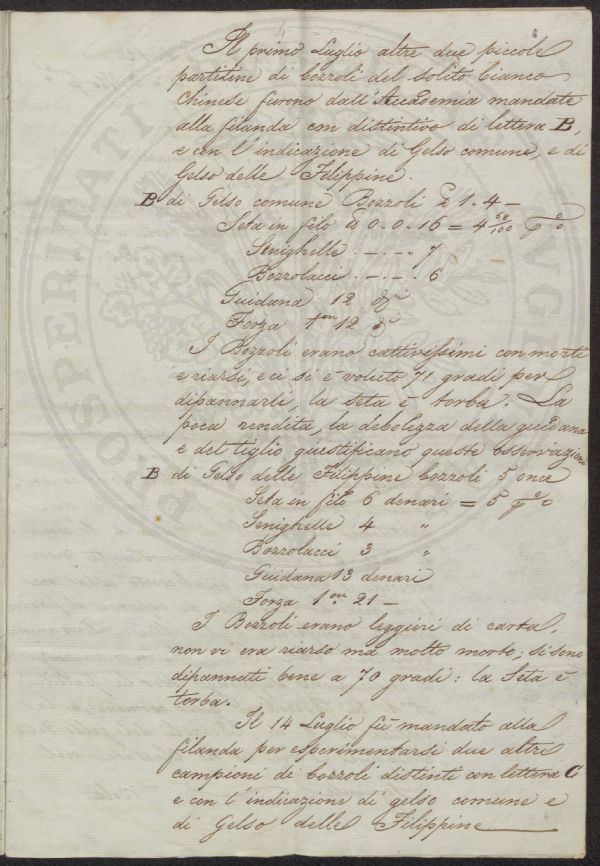 5
Il primo Luglio altre due piccole
partitine di bozzoli del solito bianco
Chinese furono dall'Accademia mandate
alla filanda con distintivo di lettera B,
e con l'indicazione di Gelso comune, e di
Gelso delle Filippine.
B di Gelso comune Bozzoli 1.4 —
Seta in filo 0.0.16 = 4 60/100 p%
Senighelle . - . - . 7
Bozzolacci . - . - . 6
Guidana 12
Forza 1 on 12
I Bozzoli erano cattivissimi con morti
e riarsi, e ci si è voluto 71 gradi per
dipannarli, la seta è torba. La
poca rendita, la debolezza della guidana
e del tiglio giustificano queste osservazioni
B di Gelso delle Filippine bozzoli 5 once
Seta in filo 6 denari = 5 p%
Senighelle 4 "
Bozzolacci 3 "
Guidana 13 denari
Forza 1 on 21 —
I Bozzoli erano leggieri di carta,
non vi era riarso ma molto morto; si sono
dipannati bene a 70 gradi: la Seta è
torba.
Il 14 Luglio fù mandato alla
filanda per esperimentarsi due altri
campioni di bozzoli distinti con lettera C
e con l'indicazione di gelso comune e
di Gelso delle Filippine
PROSPERITATI AUGE